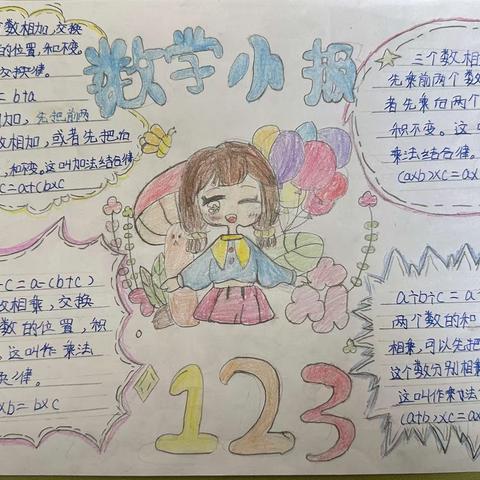 数学小报
数相加,交换
的位置,和不变。
交换律。
= b+a
加,先把前两
数相加,或者先把后
,和不变。这叫加法结合律
c=a+(bxc
三个数相
先乘前两个数
者先乘后两个
积不变。这叫
乘法结合律。
(axb)xc=ax
-c=a-(b+c)
数相乘,交换
数的位置,积
。这叫作乘法
律。
xb=bxc
a÷b÷c=a÷
两个数的和
相乘,可以先把
这个数分别相乘
这叫作乘法
(a+b)xc=ax
123